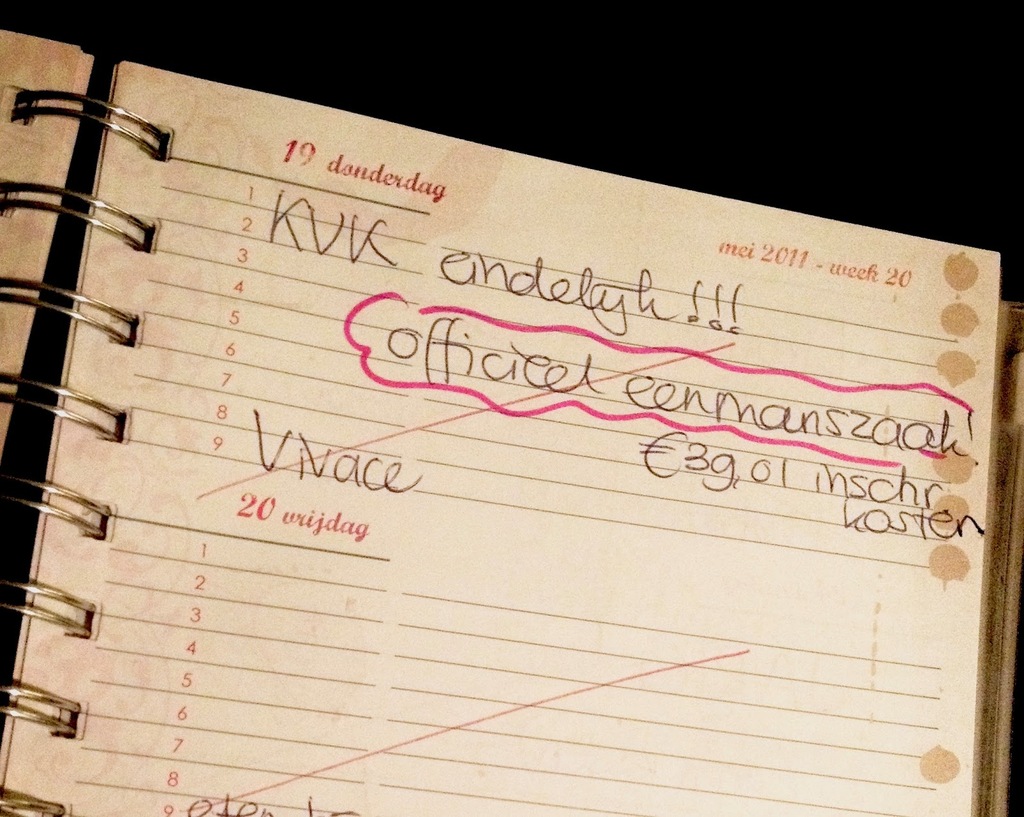 19 donderdag
mei 2011 - week 20
1
KVK eindelijk!!!
2
3
4
5
officieel eenmanszaak!
6
7
€39,01 inschr.
kosten
8
Vivace
9
20 vrijdag
1
2
3
4
5
6
7
8
9